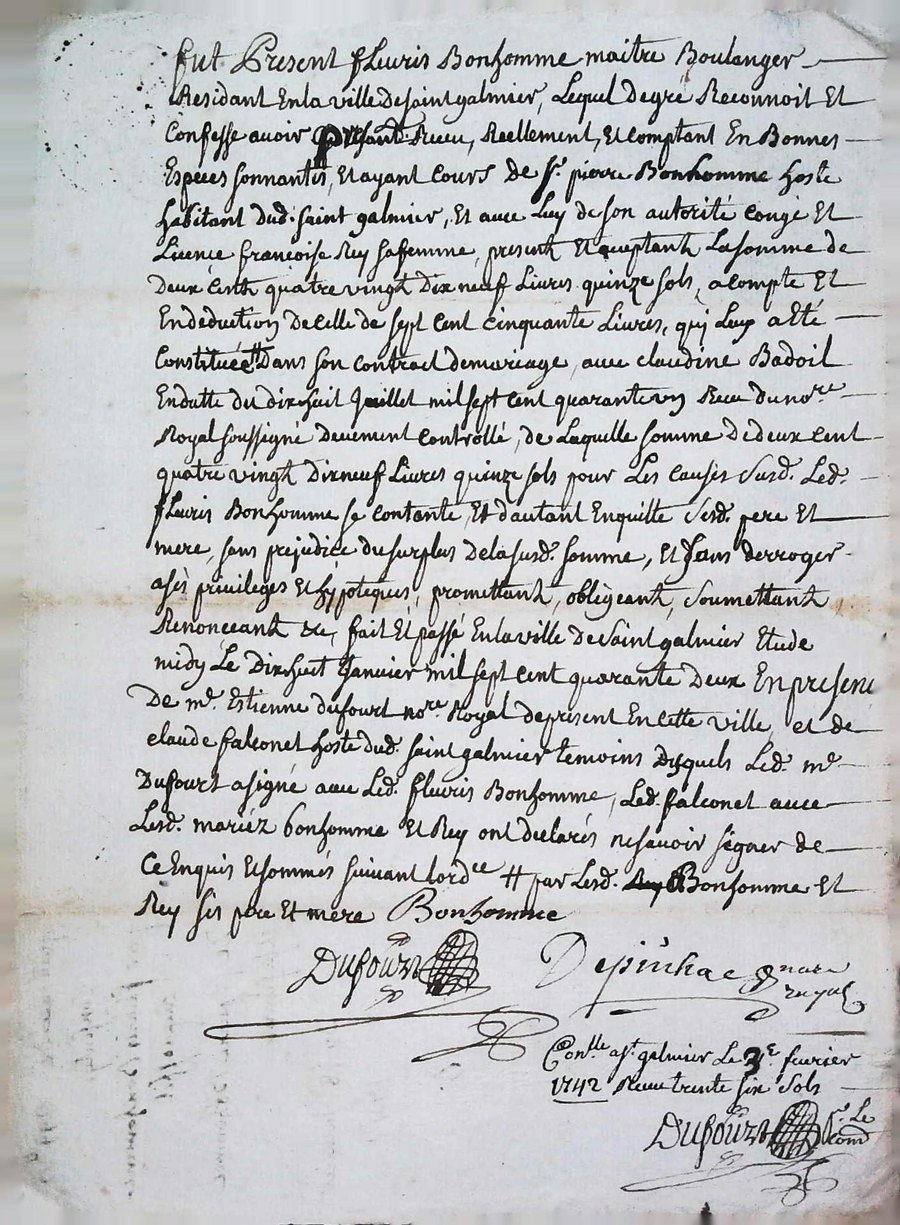 fut Present fleuris Bonhomme maitre Boulanger
Residant En la ville de saint galmier, Lequel de gré Reconnoit Et
Confesse avoir Recu, Reellement, Et comptant En Bonnes
Especes sonnantes, Et ayant Cours de Sr. pierre Bonhomme hoste
habitant dud. saint galmier, Et avec Luy de son autorité congé Et
Licence francoise Rey sa femme, present Et acceptant La somme de
Deux Cent quatre vingt Dix neuf Livres quinze sols, a compte Et
En deduction de celle de sept Cent cinquante Livres, qui Luy a Eté
Constituée # Dans son contract de mariage, avec claudine Badoil
En datte du dix huit Juillet mil sept cent quarante un Recu du nore.
Royal soussigné deuement Controllé, de Laquelle somme de deux cent
quatre vingt Dix neuf Livres quinze sols pour Les causes susd. Led.
fleuris Bonhomme se contante, Et d'autant En quitte sesd. pere Et
mere, sans prejudice du surplus de la susd. somme, Et sans derroger
a ses privileges Et hypoteques, promettant, obligeant, soumettant
Renonceant &c, fait Et passé En la ville de saint galmier Etude
midy Le Dix huit Janvier mil sept cent quarante deux En presence
De me. Estienne dufourt nore. Royal de present En cette ville, et de
claude falconet hoste dud. saint galmier temoins desquels Led. me
Dufourt a signé avec Led. fleuris Bonhomme, Led. falconet avec
Lesd. mariéz bonhomme Et Rey ont declarés ne savoir segner de
Ce Enquis Et sommés suivant lordce # par Lesd. Bonhomme Et
Rey ses pere Et mere Bonhomme
Dufourt Depinhac nore
royal
Conlle a St. galmier Le 3e. fevrier
1742 Recu trente six sols
Dufourt